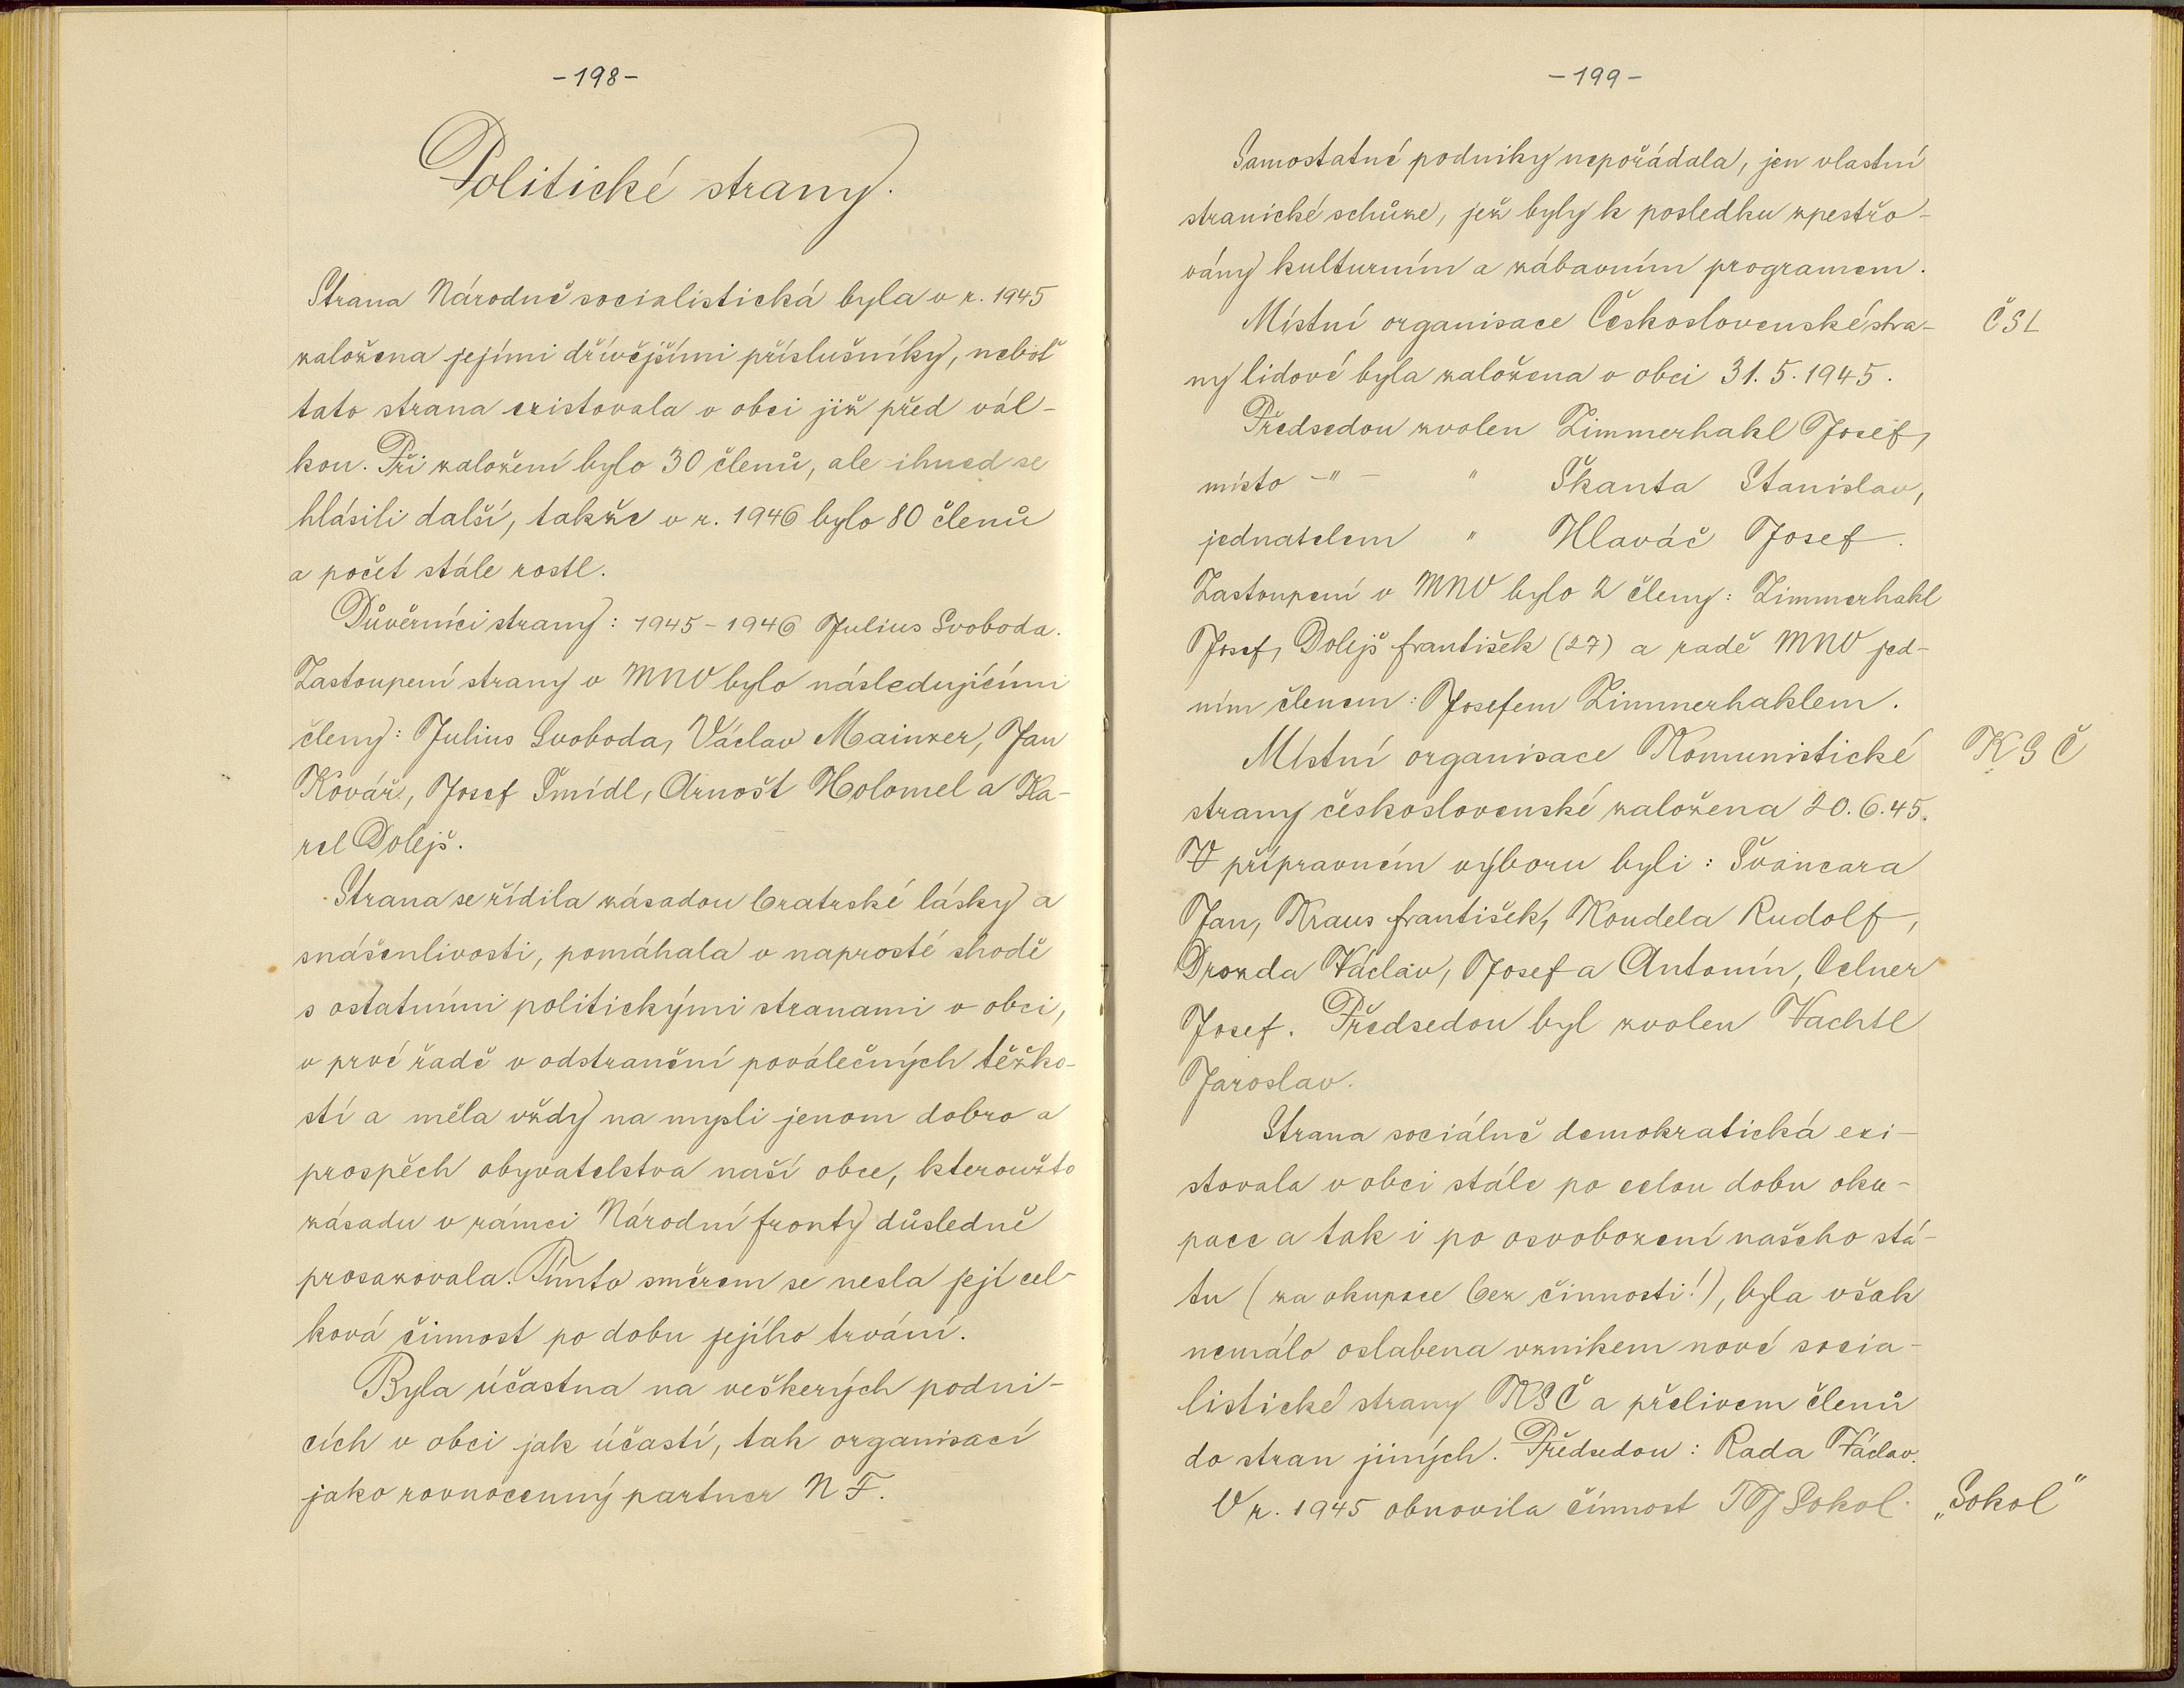 -198-
Politické strany.
Strana Národně socialistická byla v r. 1945
založena jejími dřívějšími příslušníky, neboť
tato strana existovala v obci již před vál-
kou. Při založení bylo 30 členů, ale ihned se
hlásili další, takže v r. 1946 bylo 80 členů
a počet stále rostl.
Důvěrníci strany: 1945-1946 Julius Svoboda.
Zastoupení strany v MNV bylo následujícími
členy: Julius Svoboda, Václav Mainzer, Jan
Kovář, Josef Šmídl, Arnošt Holomel a Ka-
rel Dolejš.
Strana se řídila zásadou bratrské lásky a
snášenlivosti, pomáhala v naprosté shodě
s ostatními politickými stranami v obci,
v prvé řadě v odstranění poválečných těžko-
stí a měla vždy na mysli jenom dobro a
prospěch obyvatelstva naší obce, kteroužto
zásadu v rámci Národní fronty důsledně
prosazovala. Tímto směrem se nesla její cel-
ková činnost po dobu jejího trvání.
Byla účastna na veškerých podni-
cích v obci jak účastí, tak organisací
jako rovnocenný partner N F.
-199-
Samostatné podniky nepořádala, jen vlastní
stranické schůze, jež byly k posledku zpestřo-
vány kulturním a zábavním programem.
Místní organisace Československé stra- ČSL
ny lidové byla založena v obci 31. 5. 1945.
Předsedou zvolen Zimmerhakl Josef,
místo -"- " Škanta Stanislav,
jednatelem " Hlaváč Josef.
Zastoupení v MNV bylo 2 členy: Zimmerhakl
Josef, Dolejš František (27) a radě MNV jed-
ním členem: Josefem Zimmerhaklem.
Místní organisace Komunistické KSČ
strany československé založena 20. 6. 45.
V přípravném výboru byli: Švancara
Jan, Kraus František, Koudela Rudolf,
Drozda Václav, Josef a Antonín, Celner
Josef. Předsedou byl zvolen Vachtl
Jaroslav.
Strana sociálně demokratická exi-
stovala v obci stále po celou dobu oku-
pace a tak i po osvobození našeho stá-
tu (za okupace bez činnosti!), byla však
nemálo oslabena vznikem nové socia-
listické strany KSČ a přelivem členů
do stran jiných. Předsedou: Rada Václav.
V r. 1945 obnovila činnost TJ Sokol. „Sokol"